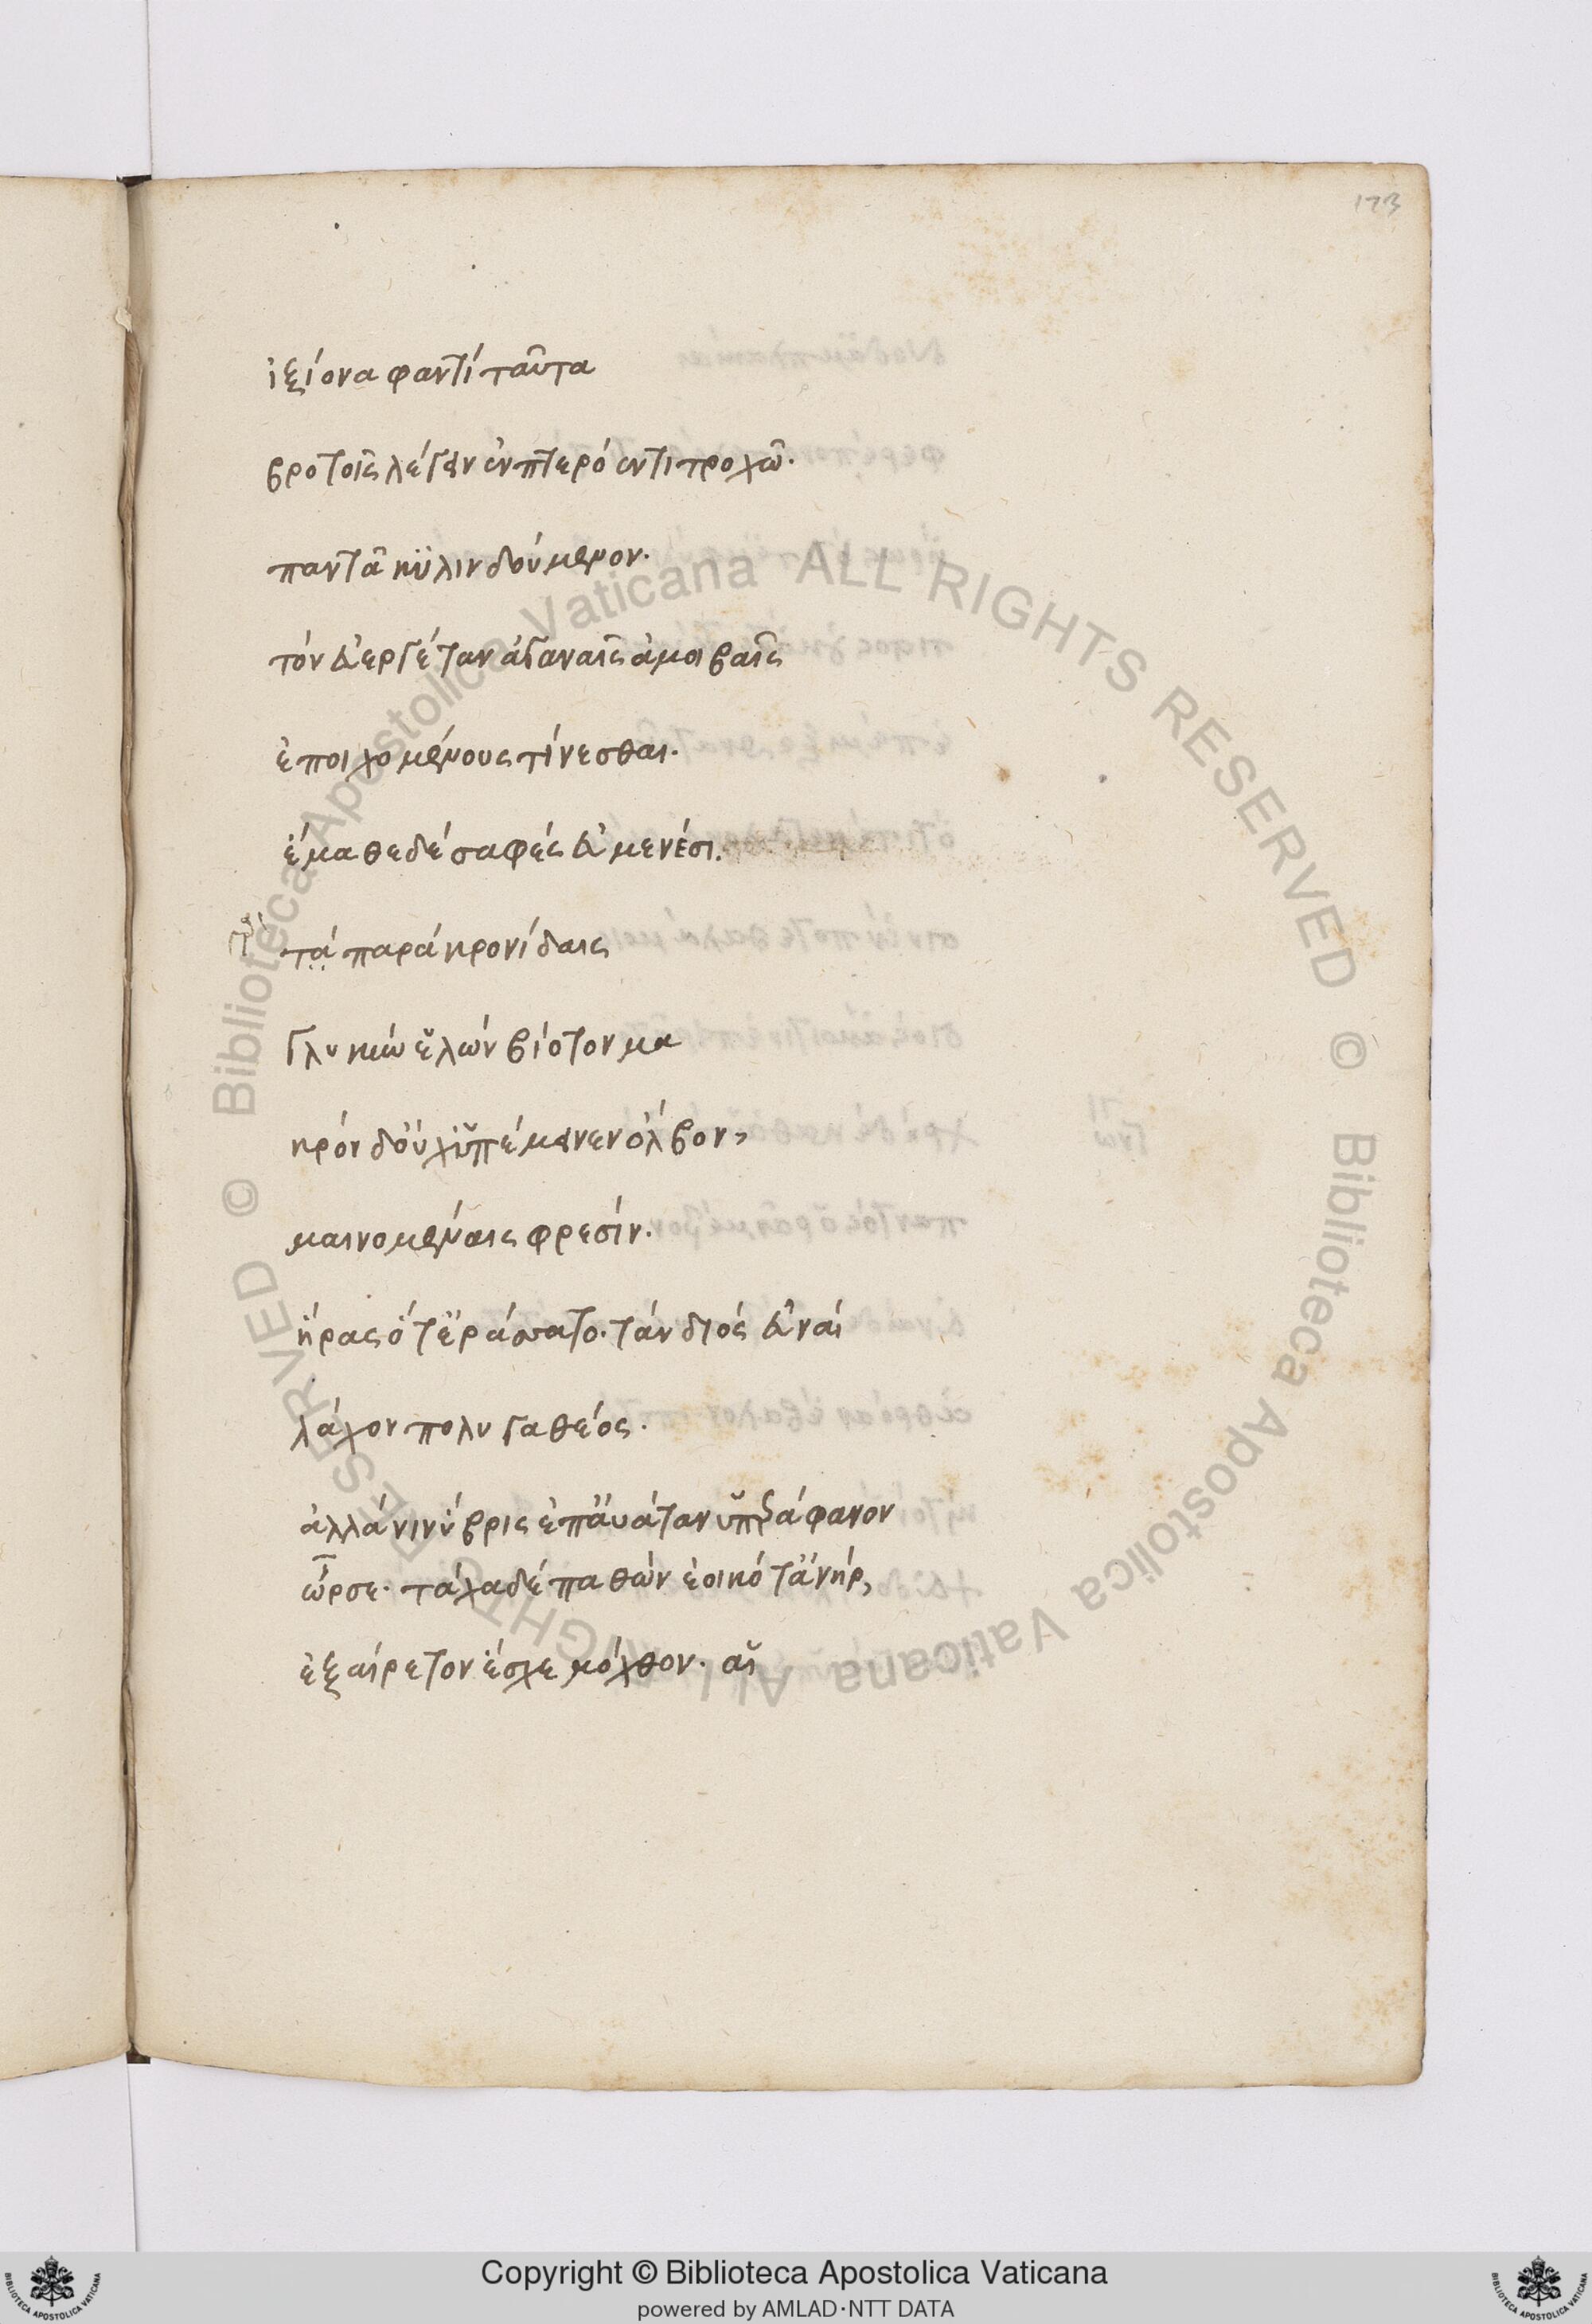 173
ἰξίονα φαντί ταῦτα
βροτοῖς λέγειν ἐν πτερόεντι τροχῶ.
παντᾶ κυλινδούμενον.
τόν εὐεργέταν ἀγαναῖς ἀμοιβαῖς
ἐποιχομένους τίνεσθαι.
ἔμαθε δέ σαφές εὐμενέσι.
τά παρά κρονίδαις
γλυκύν ἑλών βίοτον μα
κρόν δ' οὐχ ὑπέμεινεν ὄλβον,
μαινομέναις φρεσίν.
ἥρας ὅτ' ἐράσσατο. τάν διός εὐναί
λάχον πολυγαθέος.
ἀλλά νιν ὕβρις ἐπ' ἀυάταν ὑπεράφανον
ὦρσε. τάχα δέ παθών ἐοικότ' ἀνήρ,
ἐξαίρετον ἔσχε μόχθον. αἱ
© Biblioteca Apostolica Vaticana ALL RIGHTS RESERVED © Biblioteca Apostolica Vaticana ALL RIGHTS RESERVED
Copyright © Biblioteca Apostolica Vaticana
powered by AMLAD·NTT DATA
BIBLIOTECA APOSTOLICA VATICANA
BIBLIOTECA APOSTOLICA VATICANA